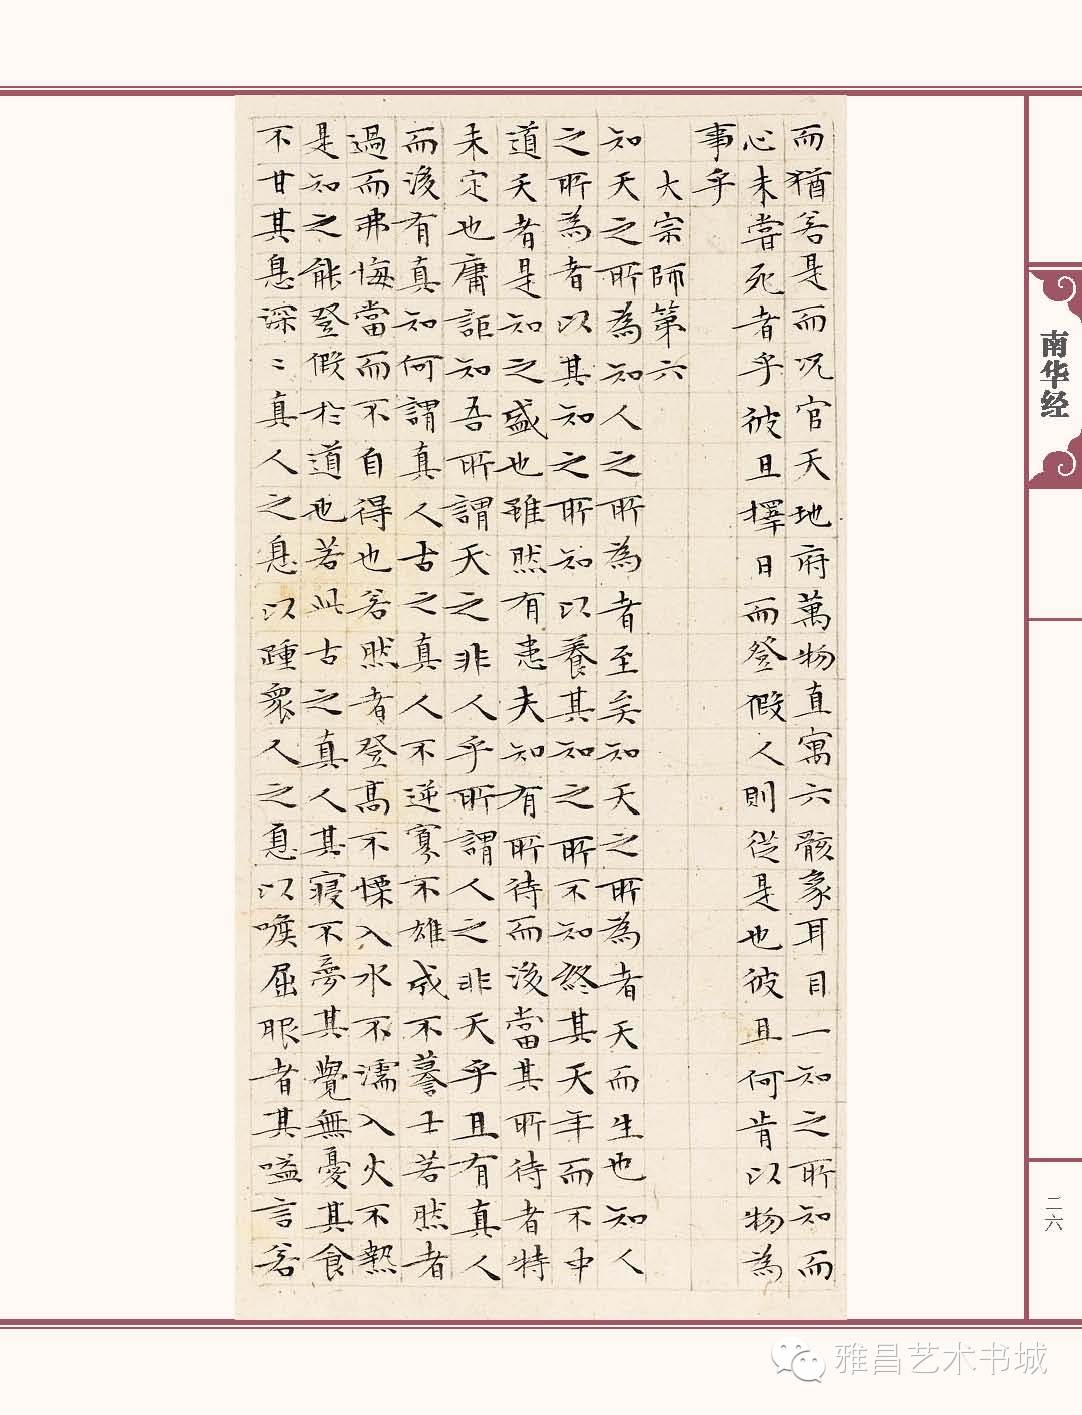 而猶若是而况官天地府萬物直寓六骸象耳目一知之所知而
心未嘗死者乎彼且擇日而登假人則從是也彼且何肯以物為
事乎
大宗師第六
知天之所為知人之所為者至矣知天之所為者天而生也知人
之所為者以其知之所知以養其知之所不知終其天年而不中
道夭者是知之盛也雖然有患夫知有所待而後當其所待者特
未定也庸詎知吾所謂天之非人乎所謂人之非天乎且有真人
而後有真知何謂真人古之真人不逆寡不雄成不謩士若然者
過而弗悔當而不自得也若然者登高不慄入水不濡入火不熱
是知之能登假於道也若此古之真人其寢不夢其覺無憂其食
不甘其息深〻真人之息以踵衆人之息以喉屈服者其嗌言若
南华经
二六
雅昌艺术书城